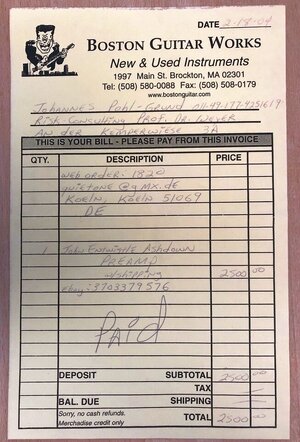 DATE 2-18-04
BOSTON GUITAR WORKS
New & Used Instruments
1997 Main St. Brockton, MA 02301
Tel: (508) 580-0088 Fax: (508) 508-0179
www.bostonguitar.com
Johannes Pohl-Grund 011-49-177-4251619
Risk Consulting Prof. Dr. Weyer
An der Kemperwiese 3A
THIS IS YOUR BILL - PLEASE PAY FROM THIS INVOICE
QTY. DESCRIPTION PRICE
Web order: 1820
quietone@gmx.de
Koeln, Koeln 51069
DE
1 John Entwistle Ashdown
Preamp
w/shipping 2500 00
ebay: 3703379576
PAID
DEPOSIT SUBTOTAL 2500 00
TAX
BAL. DUE SHIPPING
Sorry, no cash refunds.
Merchandise credit only
TOTAL 2500 00